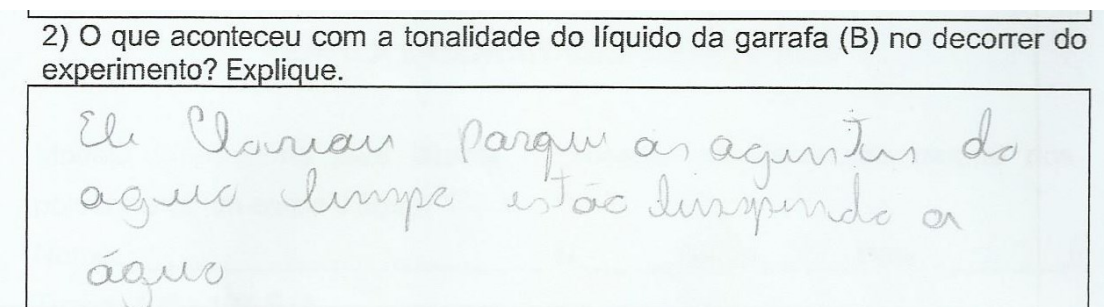 2) O que aconteceu com a tonalidade do líquido da garrafa (B) no decorrer do
experimento? Explique.
Ele Clariou Porque os aguntes da
agua limpa estão limpando a
água